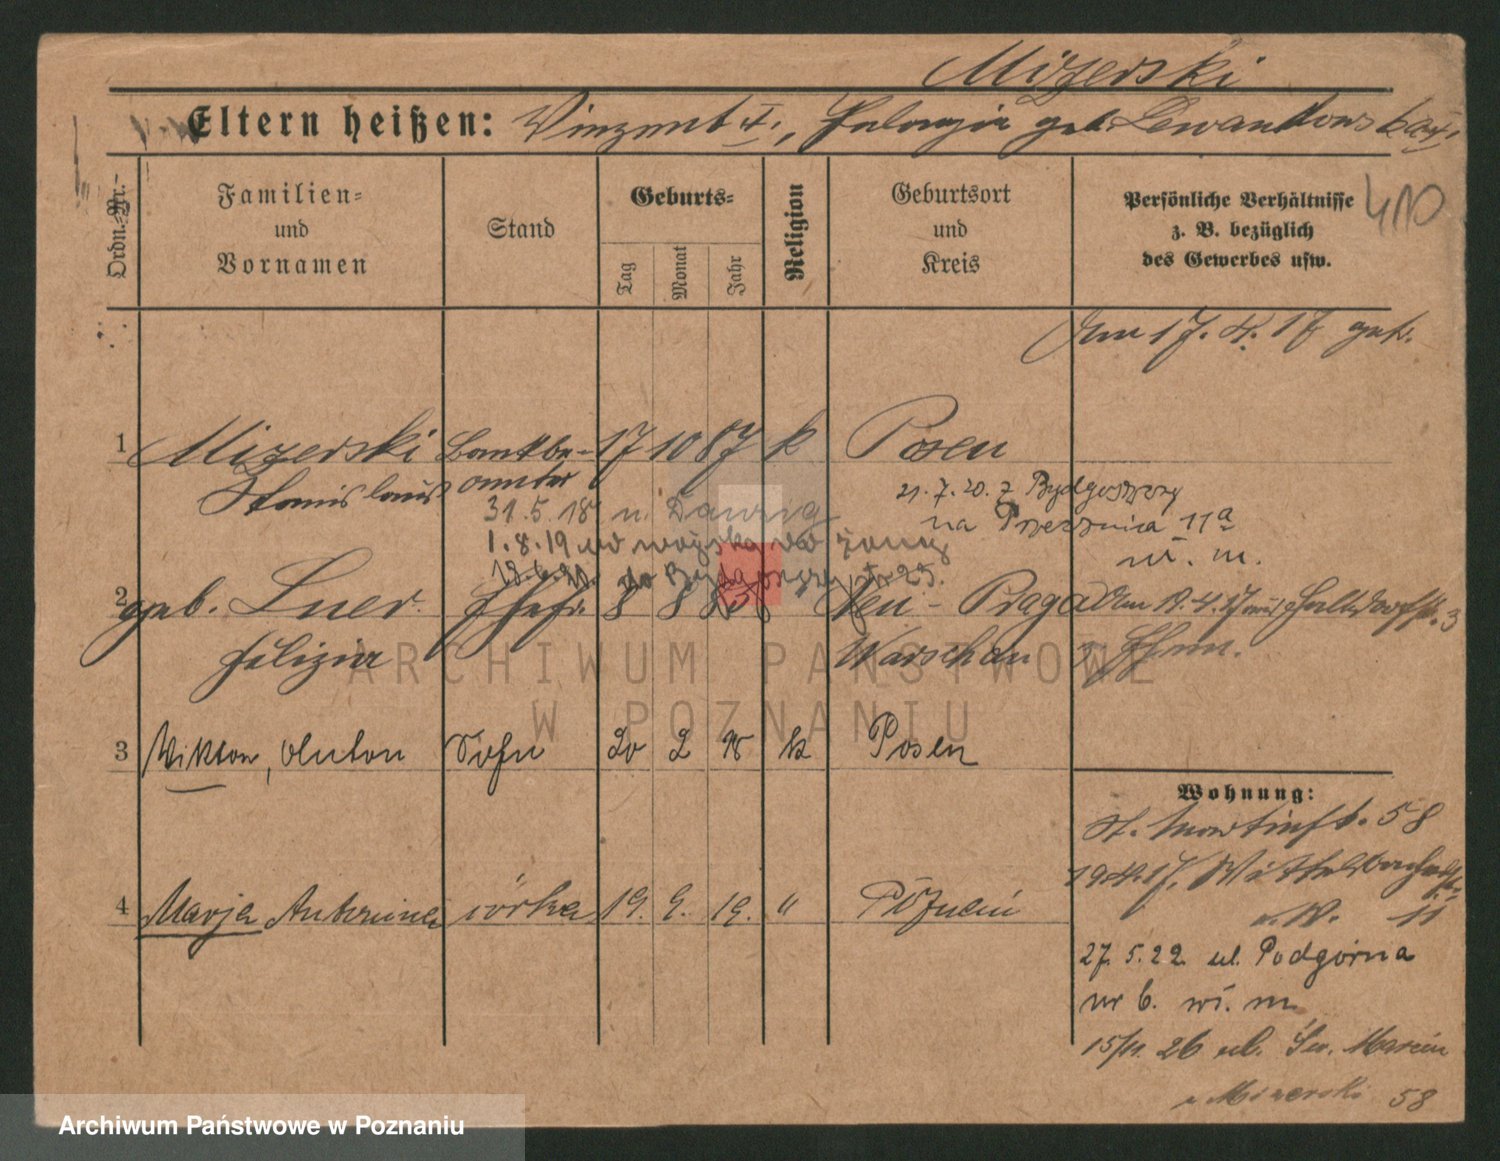 Mizerski
Eltern heißen: Vinzent †, Pelagia geb. Lewandowska †.
Ordn.-Nr.
Familien-
und
Vornamen
Stand
Geburts-
Tag
Monat
Jahr
Religion
Geburtsort
und
Kreis
Persönliche Verhältnisse
z. B. bezüglich
des Gewerbes usw.
410
Am 17. 4. 17 getr.
1 Mizerski Bankbe- 17 10 87 k Posen
Stanislaus amter
31.5.18 n. Danzig
21.7.20. z Bydgoszczy
na 11a
1.8.19 do wojska
w. m.
18.6.20. do Bydgoszczy
2 geb. Luer Ehefr. 8 8 Neu-Praga Am 18.4.17 3
Felizia Warschau
3 Wiktor, Anton Sohn 20 2 18 k Posen
Wohnung:
St. Martinstr. 58
19.4.17. 11
4 Marja Antonina córka 19. 9. 19. " Poznań
27.5.22 ul. Podgórna
nr 6. w. m.
15/11 26 ul. Św. Marcin
u Mizerski 58
ARCHIWUM PAŃSTWOWE
W POZNANIU
Archiwum Państwowe w Poznaniu